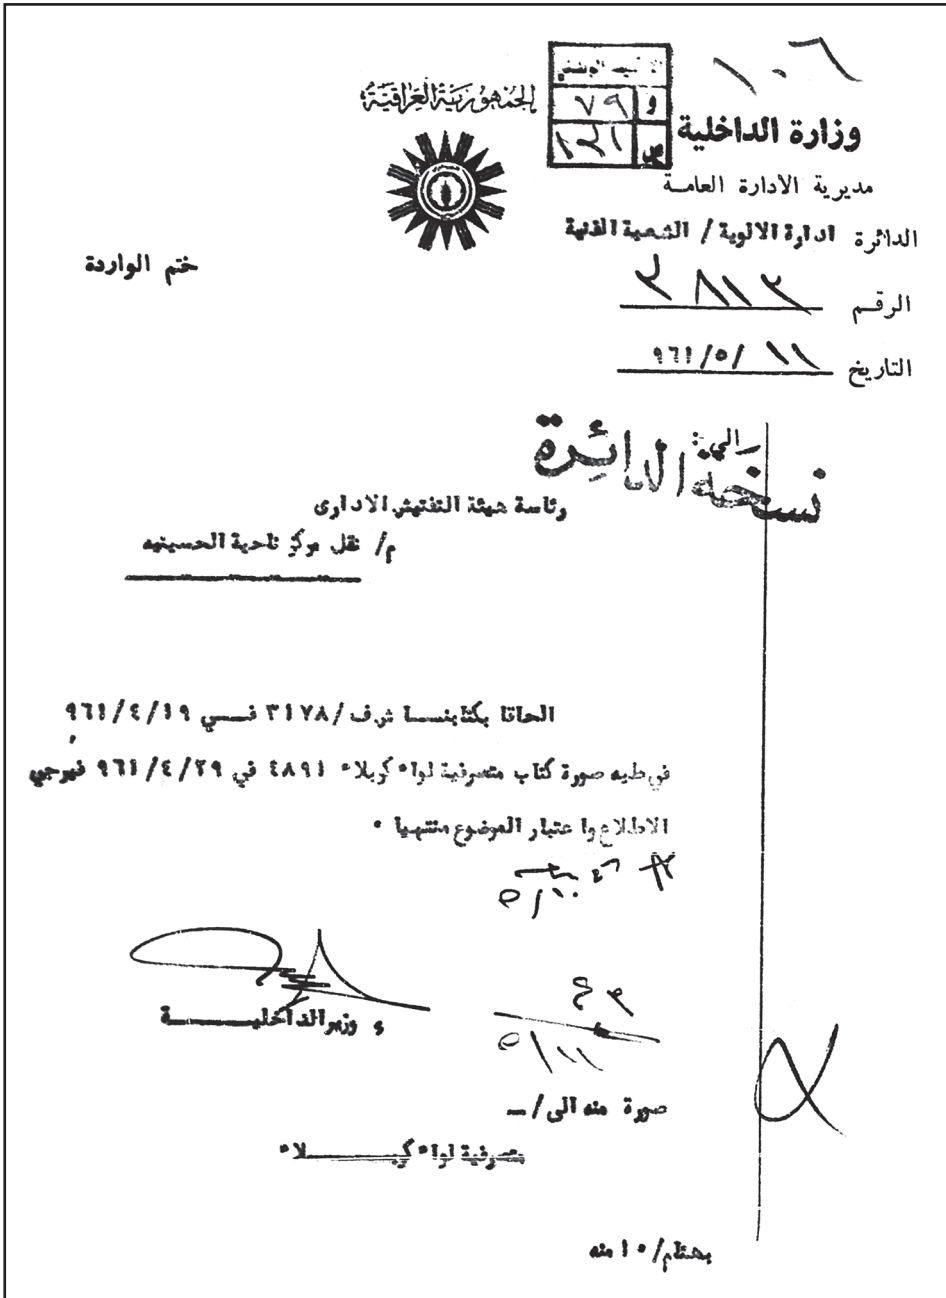 ١٠٦
الجمهورية العراقية
و ٧٩
ص
وزارة الداخلية
مديرية الادارة العامة
الدائرة ادارة الالوية / الشعبة الفنية
ختم الواردة
الرقم
التاريخ ١١ /٥/ ٩٦١
الى :
نسخة الدائرة
رئاسة هيئة التفتيش الادارى
م/ نقل مركز ناحية الحسينيه
الحاقا بكتابنسا ش٠ف/٣١٧٨ فــي ٩٦١/٤/١٩
في طيه صورة كتاب متصرفية لواء كربلاء ٤٨٩١ في ٩٦١/٤/٢٩ فيرجي
الاطلاع وا عتبار الموضوع منتهيا ٠
٥/١٠
ء وزيرالداخليــــــة
٥/١١
صورة منه الى/ ــ
متصرفية لواء كربـــــــلاء
بهنام/٥ا منه